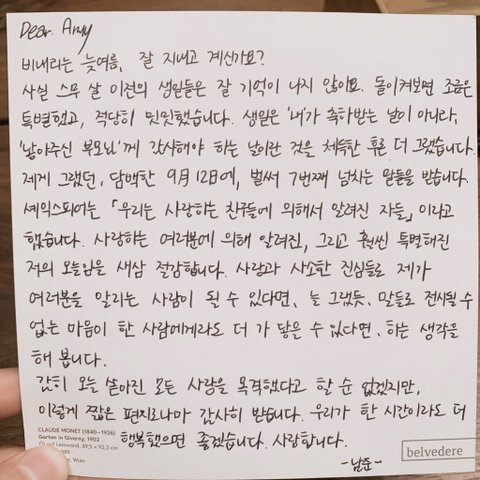 Dear. Army
비내리는 늦여름, 잘 지내고 계신가요?
사실 스무 살 이전의 생일들은 잘 기억이 나지 않아요. 돌이켜보면 조금은
특별했고, 적당히 밋밋했습니다. 생일은 '내'가 축하받는 날이 아니라,
'낳아주신 부모님'께 감사해야 하는 날이란 것을 체득한 후론 더 그랬습니다.
제게 그랬던, 담백한 9月 12日에, 벌써 7번째 넘치는 말들을 받습니다.
셰익스피어는 「우리는 사랑하는 친구들에 의해서 알려진 자들」이라고
했습니다. 사랑하는 여러분에 의해 알려진, 그리고 훨씬 특별해진
저의 오늘임을 새삼 절감합니다. 사랑과 사소한 진심들로 제가
여러분을 알리는 사람이 될 수 있다면, 늘 그랬듯, 말들로 전시될 수
없는 마음이 한 사람에게라도 더 가 닿을 수 있다면, 하는 생각을
해 봅니다.
감히 오늘 쏟아진 모든 사랑을 목격했다고 할 순 없겠지만,
이렇게 짧은 편지로나마 감사히 받습니다. 우리가 한 시간이라도 더
행복했으면 좋겠습니다. 사랑합니다.
-남준-
CLAUDE MONET (1840–1926)
Garten in Giverny, 1902
Öl auf Leinwand, 89,5 × 92,3 cm
Wien
belvedere